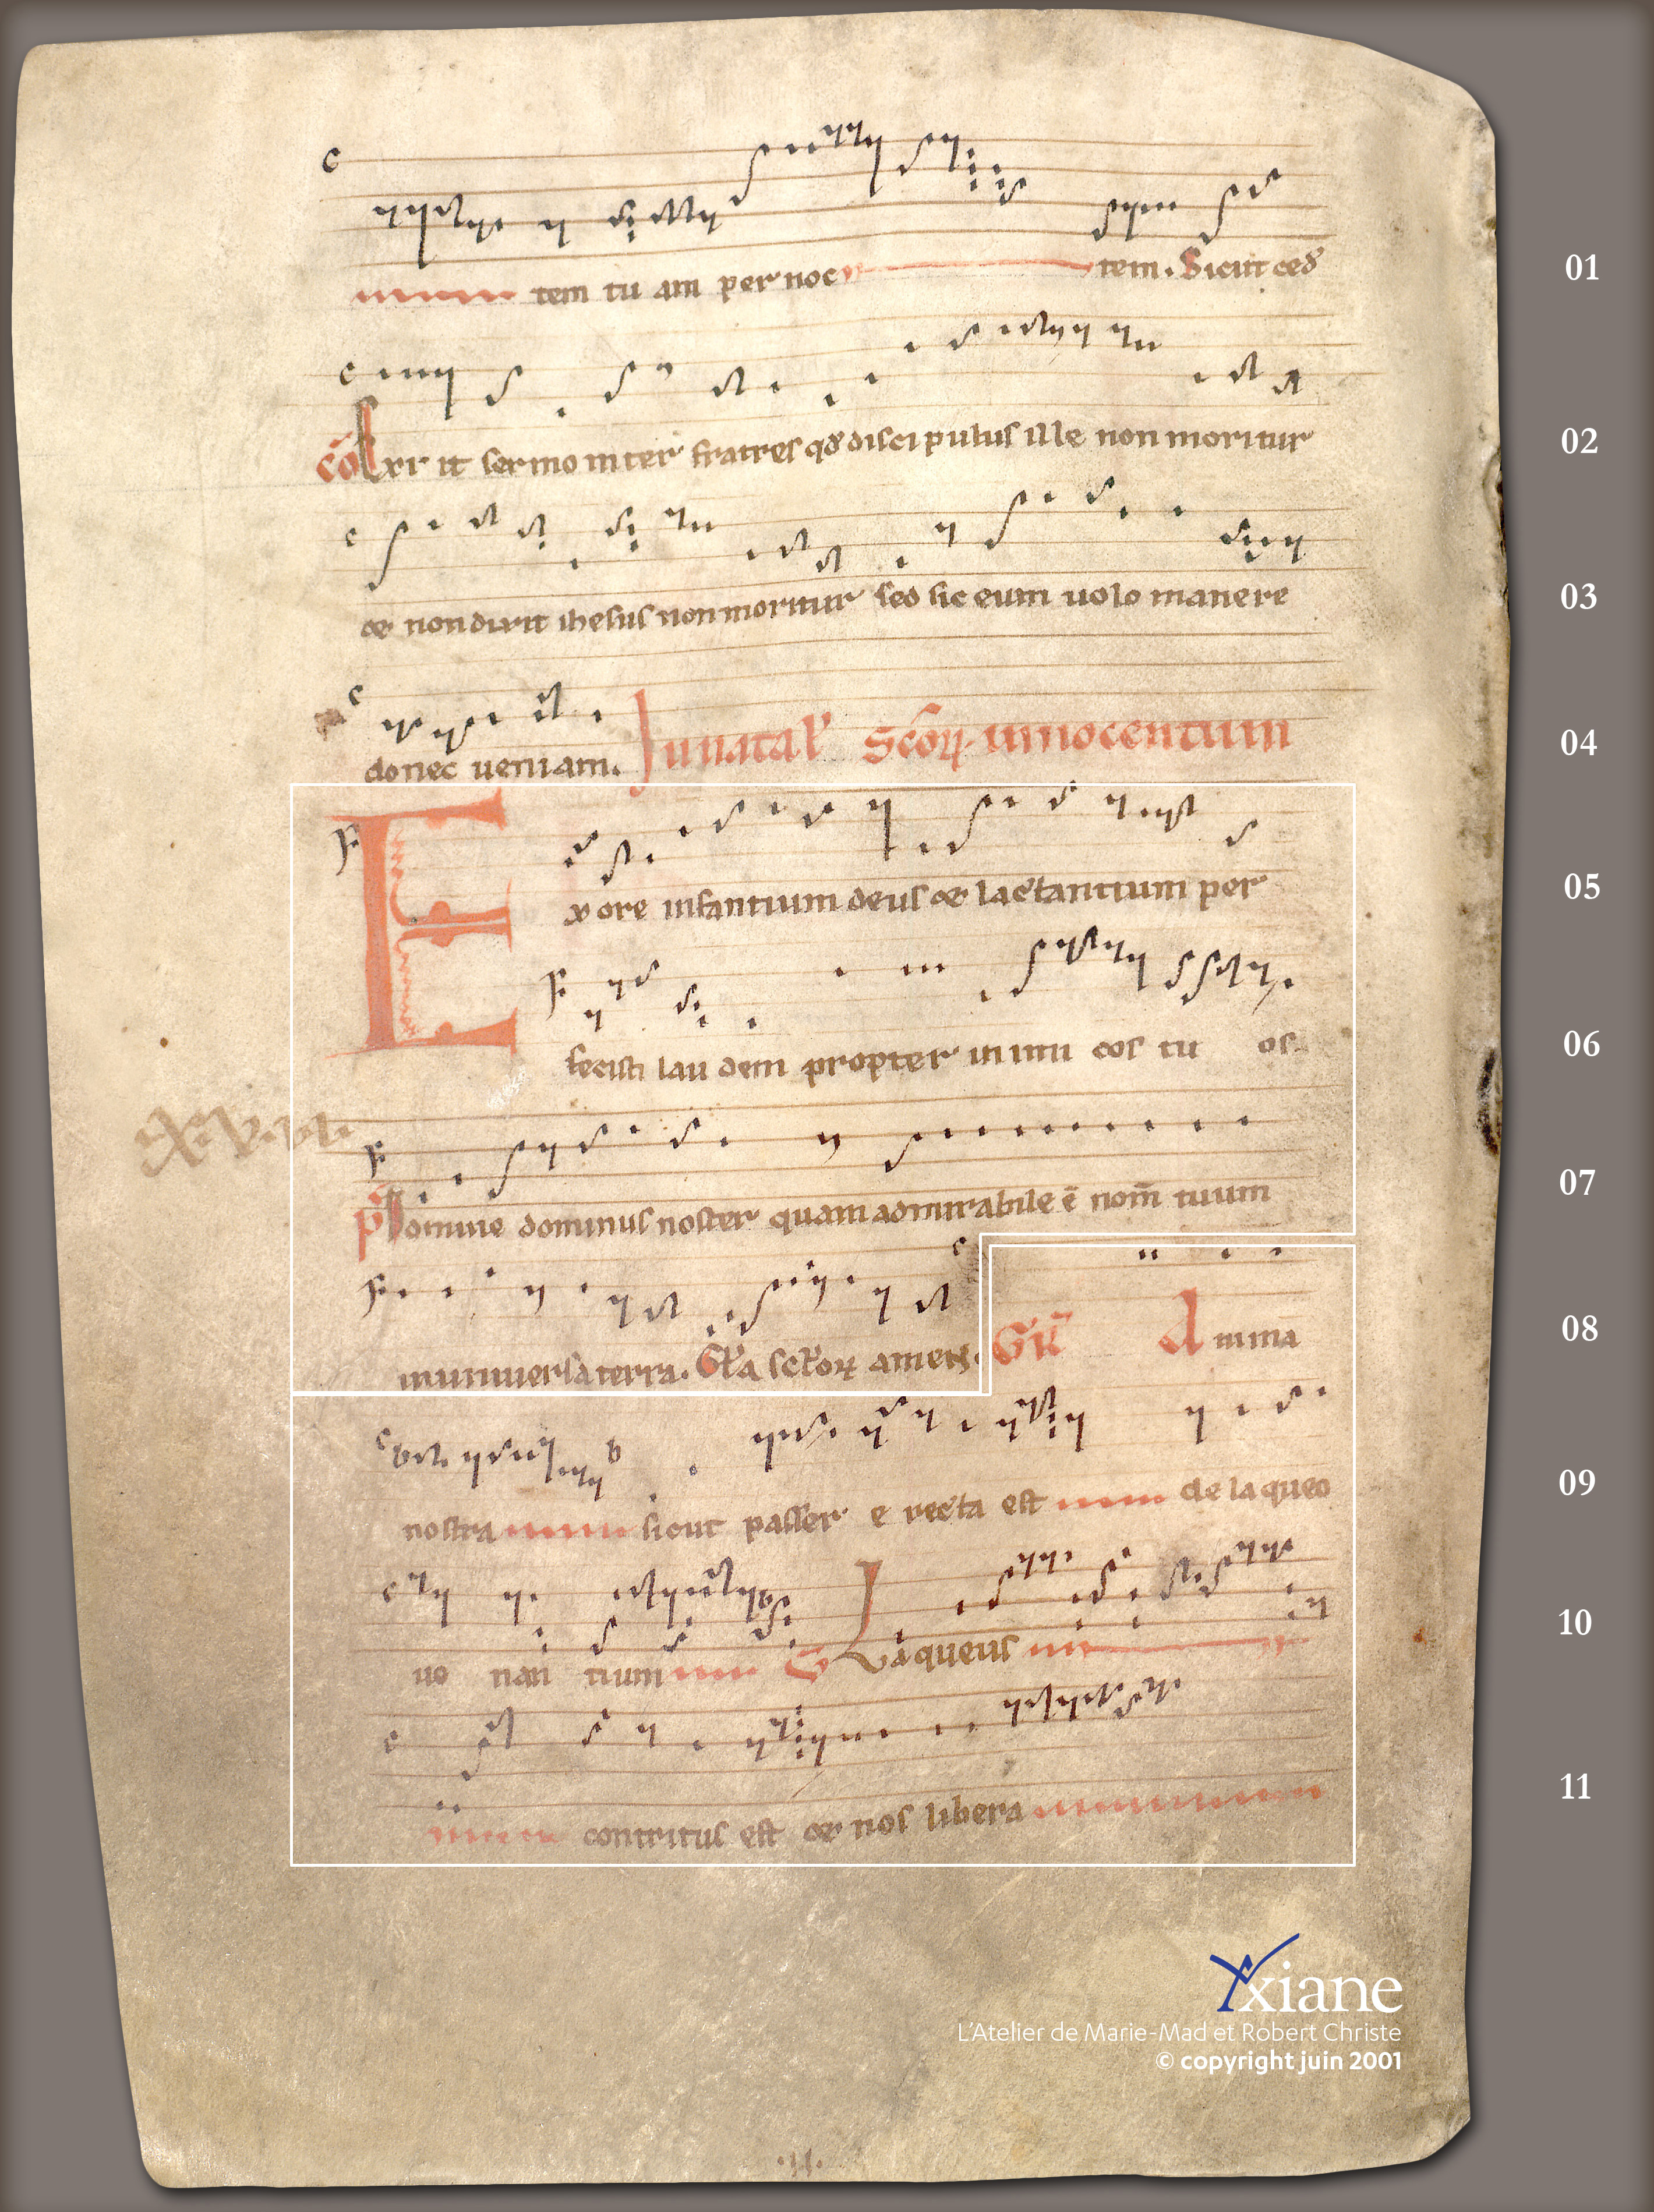 tem tu am per noc tem. Sicut ced̄ 01
cō Exi it sermo inter fratres qđ discipulus ille non moritur 02
et non dixit ihesus non moritur sed sic eum uolo manere 03
donec ueniam. In natał Scōꝝ innocentum 04
Ex ore infantium deus et lactantium per 05
fecisti lau dem propter inimi cos tu os 06
.cxv.vii.
p̄s Domine dominus noster quam admirabile ē nom̄ tuum 07
in uniuersa terra. Gła sclōꝝ amen. GR̄ Anima 08
nostra sicut passer e repta est de laqueo 09
ue nan tium V Laqueus 10
contritus est et nos libera 11
Yxiane
L'Atelier de Marie-Mad et Robert Christe
© copyright juin 2001